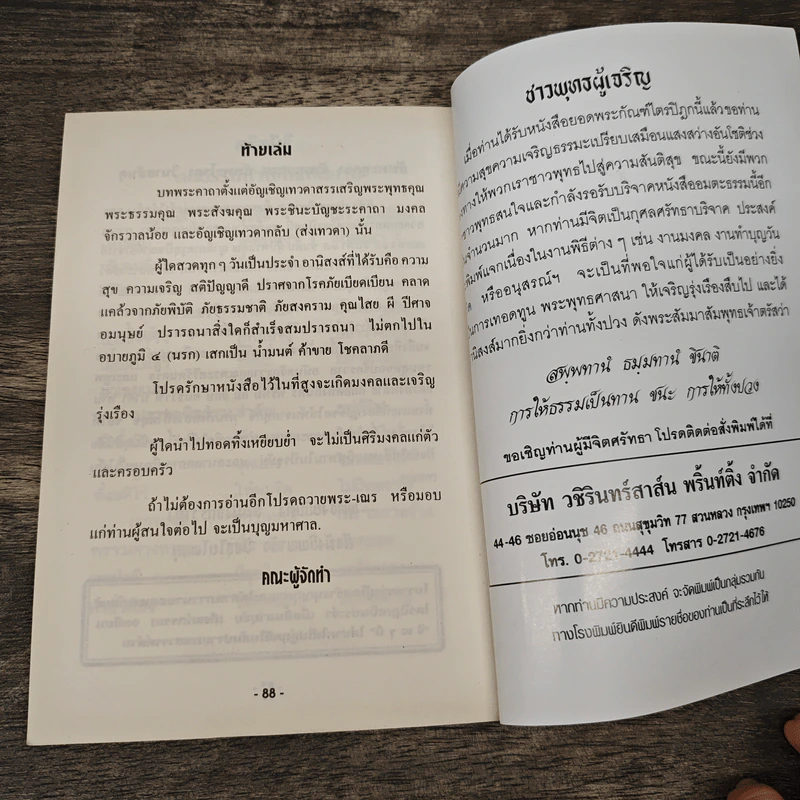 ท้ายเล่ม
บทพระคาถาตั้งแต่อัญเชิญเทวดาสรรเสริญพระพุทธคุณ
พระธรรมคุณ พระสังฆคุณ พระชินะบัญชะระคาถา มงคล
จักรวาลน้อย และอัญเชิญเทวดากลับ (ส่งเทวดา) นั้น
ผู้ใดสวดทุก ๆ วันเป็นประจำ อานิสงส์ที่ได้รับคือ ความ
สุข ความเจริญ สติปัญญาดี ปราศจากโรคภัยเบียดเบียน คลาด
แคล้วจากภัยพิบัติ ภัยธรรมชาติ ภัยสงคราม คุณไสย ผี ปีศาจ
อมนุษย์ ปรารถนาสิ่งใดก็สำเร็จสมปรารถนา ไม่ตกไปใน
อบายภูมิ ๔ (นรก) เสกเป็น น้ำมนต์ ค้าขาย โชคลาภดี
โปรดรักษาหนังสือไว้ในที่สูงจะเกิดมงคลและเจริญ
รุ่งเรือง
ผู้ใดนำไปทอดทิ้งเหยียบย่ำ จะไม่เป็นศิริมงคลแก่ตัว
และครอบครัว
ถ้าไม่ต้องการอ่านอีกโปรดถวายพระ-เณร หรือมอบ
แก่ท่านผู้สนใจต่อไป จะเป็นบุญมหาศาล.
คณะผู้จัดทำ
- 88 -
ชาวพุทธผู้เจริญ
เมื่อท่านได้รับหนังสือยอดพระกัณฑ์ไตรปิฎกนี้แล้วขอท่าน
มีความสุขความเจริญธรรมะเปรียบเสมือนแสงสว่างอันโชติช่วง
ทางให้พวกเราชาวพุทธไปสู่ความสันติสุข ขณะนี้ยังมีพวก
ชาวพุทธสนใจและกำลังรอรับบริจาคหนังสืออมตะธรรมนี้อีก
จำนวนมาก หากท่านมีจิตเป็นกุศลศรัทธาบริจาค ประสงค์
พิมพ์แจกเนื่องในงานพิธีต่าง ๆ เช่น งานมงคล งานทำบุญวัน
หรืออนุสรณ์ฯ จะเป็นที่พอใจแก่ผู้ได้รับเป็นอย่างยิ่ง
ในการเทอดทูน พระพุทธศาสนา ให้เจริญรุ่งเรืองสืบไป และได้
อานิสงส์มากยิ่งกว่าท่านทั้งปวง ดังพระสัมมาสัมพุทธเจ้าตรัสว่า
สพฺพทานํ ธมฺมทานํ ชินาติ
การให้ธรรมเป็นทาน ชนะ การให้ทั้งปวง
ขอเชิญท่านผู้มีจิตศรัทธา โปรดติดต่อสั่งพิมพ์ได้ที่
บริษัท วชิรินทร์สาส์น พริ้นท์ติ้ง จำกัด
44-46 ซอยอ่อนนุช 46 ถนนสุขุมวิท 77 สวนหลวง กรุงเทพฯ 10250
โทร. 0-2721-4444 โทรสาร 0-2721-4676
หากท่านมีความประสงค์ จะจัดพิมพ์เป็นกลุ่มรวมกัน
ทางโรงพิมพ์ยินดีพิมพ์รายชื่อของท่านเป็นที่ระลึกไว้ให้